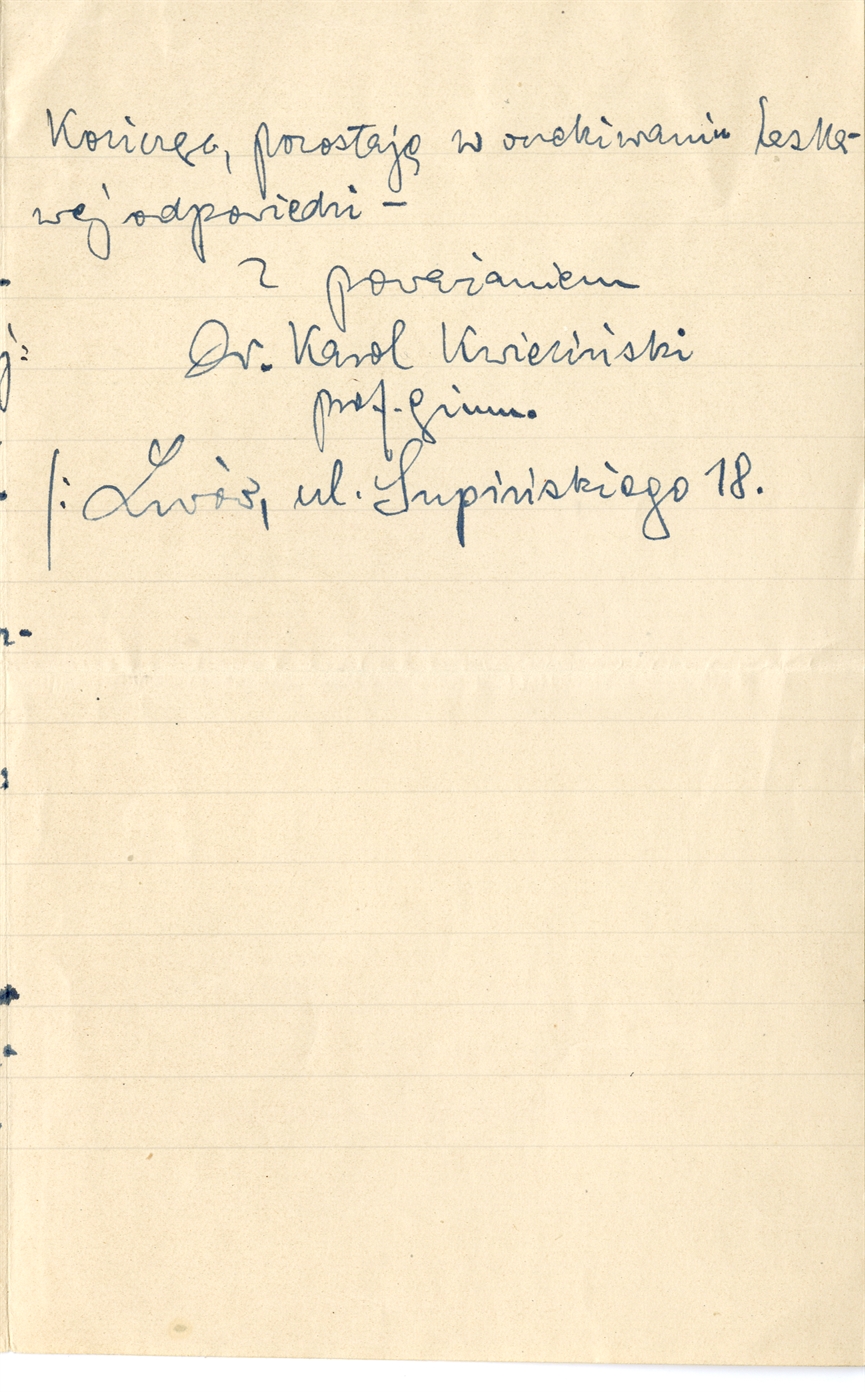 Kończąc, pozostaję w oczekiwaniu łaska-
wej odpowiedzi –
Z poważaniem
Dr. Karol Kwieciński
prof. gimn.
/: Lwów, ul. Supińskiego 18.